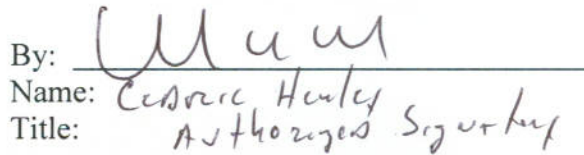 By:
Name: Cedric Henley
Title: Authorized Signatory